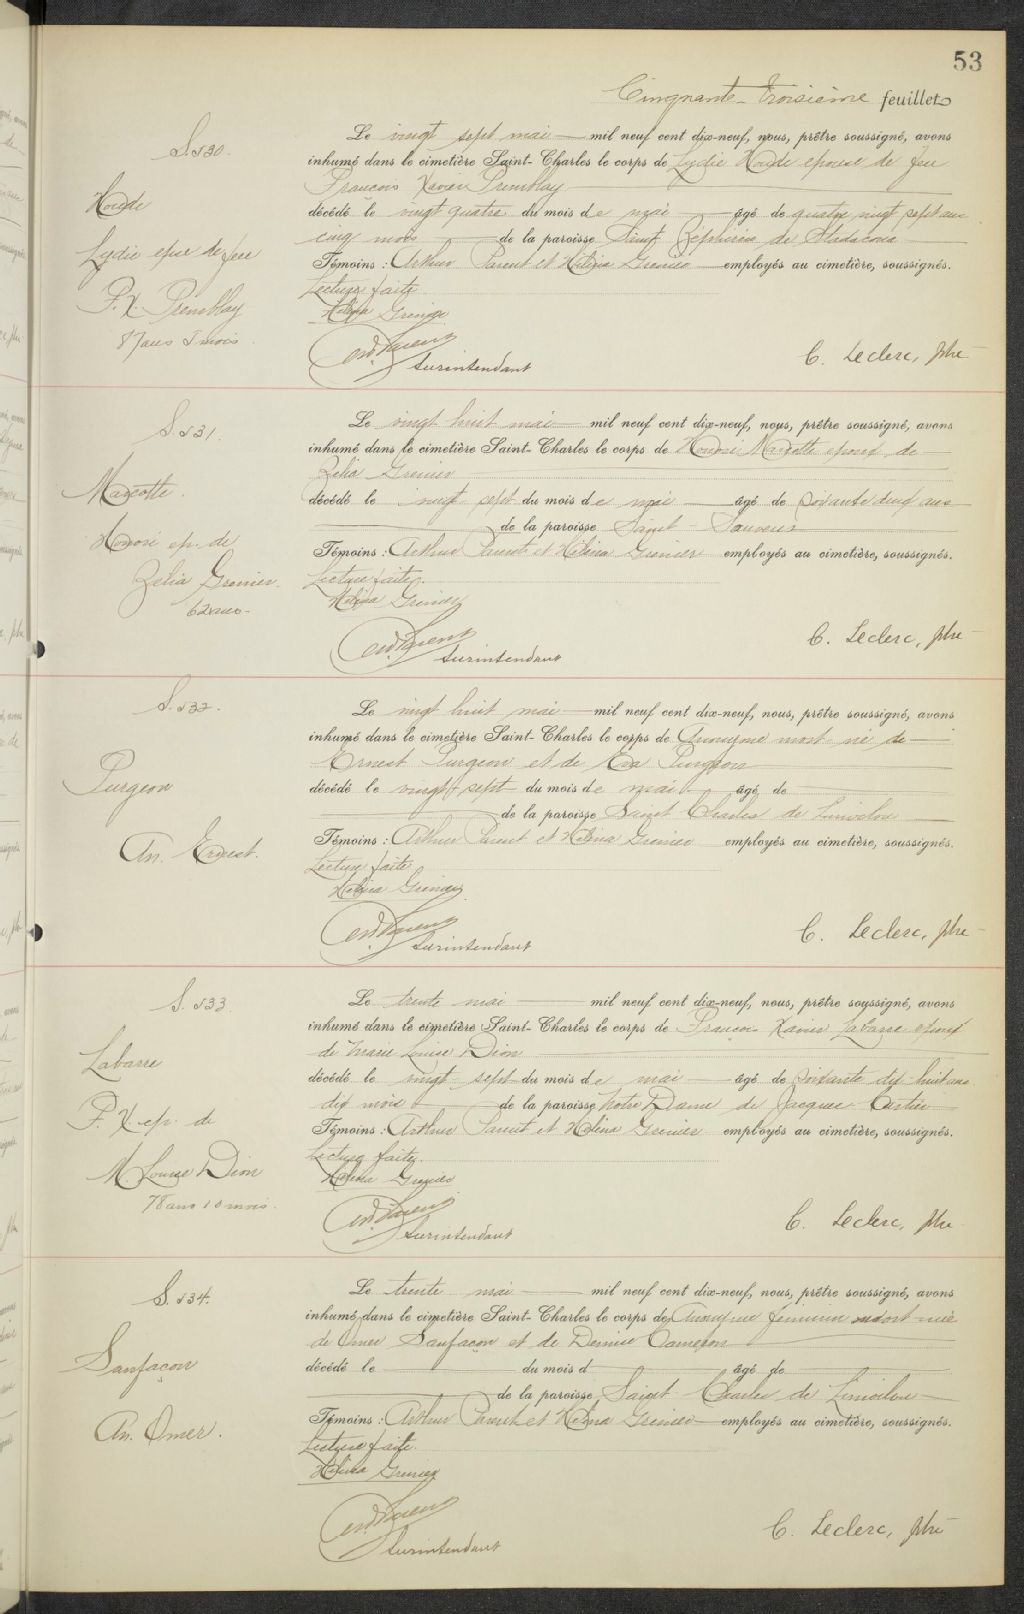 53
Cinquante-troisième feuillet
S. 530.
Houde
Lydie epse de feu
F. X. Tremblay
87 ans 5 mois
Le vingt sept mai mil neuf cent dix-neuf, nous, prêtre soussigné, avons
inhumé dans le cimetière Saint-Charles le corps de Lydie Houde epouse de feu
Francois Xavier Tremblay
décédé le vingt quatre du mois de mai âgé de quatre vingt sept ans
cinq mois de la paroisse Saint Zephirin de Stadacona
Témoins : Arthur Parent et Héléna Grenier employés au cimetière, soussignés.
Lecture faite
Héléna Grenier
Surintendant
C. Leclerc, ptre
S. 531.
Marcotte.
Honoré ep. de
Zelia Grenier.
62 ans
Le vingt huit mai mil neuf cent dix-neuf, nous, prêtre soussigné, avons
inhumé dans le cimetière Saint-Charles le corps de Honoré Marcotte epoux de
Zelia Grenier
décédé le vingt sept du mois de mai âgé de soixante deux ans
de la paroisse Saint Sauveur
Témoins : Arthur Parent et Héléna Grenier employés au cimetière, soussignés.
Lecture faite.
Héléna Grenier
Surintendant
C. Leclerc, ptre
S. 532.
Turgeon
An. Ernest.
Le vingt huit mai mil neuf cent dix-neuf, nous, prêtre soussigné, avons
inhumé dans le cimetière Saint-Charles le corps de Anonyme mort né de
Ernest Turgeon et de Eva Turgeon
décédé le vingt sept du mois de mai âgé de
de la paroisse Saint Charles de Limoilou
Témoins : Arthur Parent et Héléna Grenier employés au cimetière, soussignés.
Lecture faite
Héléna Grenier
Surintendant
C. Leclerc, ptre
S. 533
Labarre
F. X. ep. de
M. Louise Dion
78 ans 10 mois.
Le trente mai mil neuf cent dix-neuf, nous, prêtre soussigné, avons
inhumé dans le cimetière Saint-Charles le corps de Francois Xavier Labarre epoux
de Marie Louise Dion
décédé le vingt sept du mois de mai âgé de soixante dix huit ans
dix mois de la paroisse Notre Dame de Jacques Cartier
Témoins : Arthur Parent et Héléna Grenier employés au cimetière, soussignés.
Lecture faite.
Héléna Grenier
Surintendant
C. Leclerc, ptre
S. 534.
Sanfaçon
An. Omer.
Le trente mai mil neuf cent dix-neuf, nous, prêtre soussigné, avons
inhumé dans le cimetière Saint-Charles le corps de Anonyme féminin mort-née
de Omer Sanfaçon et de Denise Cameron
décédé le du mois d âgé de
de la paroisse Saint Charles de Limoilou
Témoins : Arthur Parent et Héléna Grenier employés au cimetière, soussignés.
Lecture faite.
Héléna Grenier
Surintendant
C. Leclerc, ptre